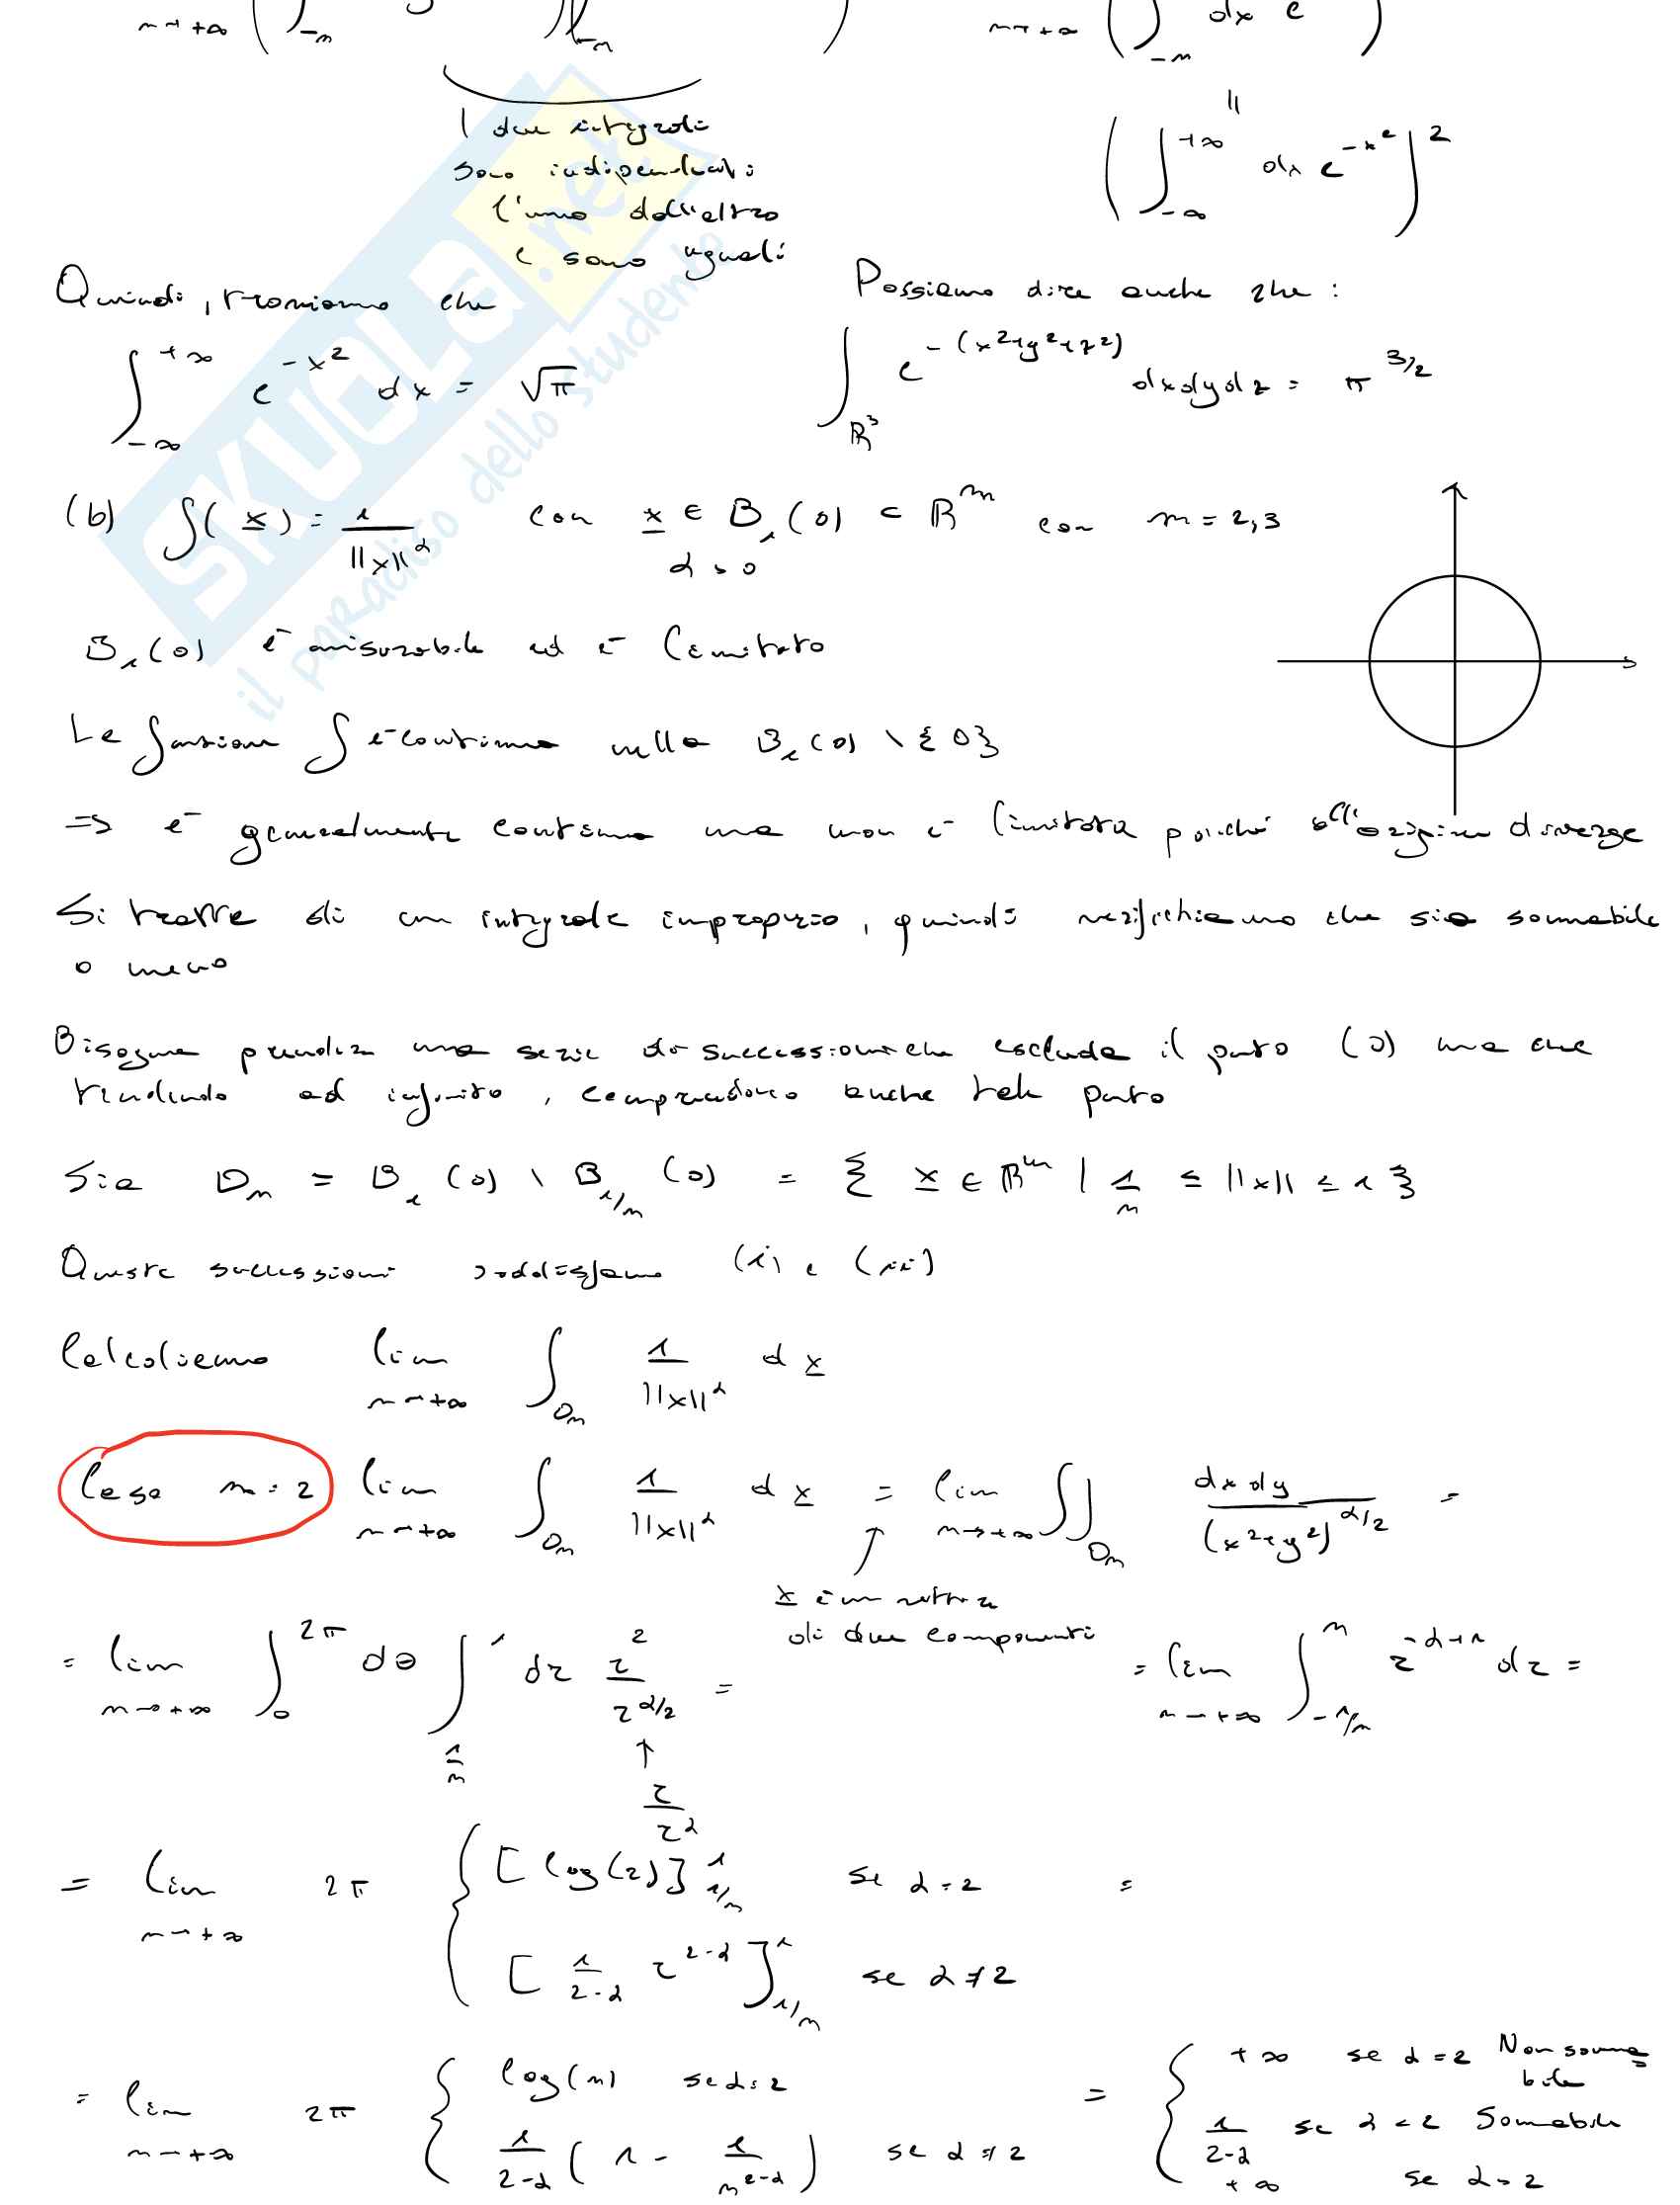 n→+∞ ( ∫_{-n} ∫_{-n} ) n→+∞ ( ∫_{-n} dx e )
I due integrali
sono indipendenti
l'uno dall'altro
e sono uguali
||
( ∫_{-∞}^{+∞} dx e^{-x^2} )^2
Quindi, troviamo che
∫_{-∞}^{+∞} e^{-x^2} dx = √π
Possiamo dire anche che :
∫_{R^3} e^{-(x^2+y^2+z^2)} dxdydz = π^{3/2}
(b) f(x) = 1/||x||^α con x ∈ B_1(0) ⊂ R^m con m = 2,3
α > 0
B_1(0) è misurabile ed è limitato
La funzione f è continua nella B_1(0) \ {0}
=> è generalmente continua ma non è limitata poiché all'origine diverge
Si tratta di un integrale improprio, quindi verifichiamo che sia sommabile
o meno
Bisogna prendere una serie di successioni che escluda il punto (0) ma che
tendendo ad infinito, comprendono anche tale punto
Sia D_n = B_1(0) \ B_{1/n}(0) = { x ∈ R^m | 1/n ≤ ||x|| ≤ 1 }
Queste successioni soddisfano (i) e (ii)
Calcoliamo lim_{n→+∞} ∫_{D_n} 1/||x||^α dx
Caso m = 2 lim_{n→+∞} ∫_{D_n} 1/||x||^α dx = lim_{n→+∞} ∬_{D_n} dxdy/(x^2+y^2)^{α/2} =
↑
x è un vettore
di due componenti
= lim_{n→+∞} ∫_0^{2π} dθ ∫_{1/n}^1 dr r^2/r^{α/2} = = lim_{n→+∞} ∫_{-1/n}^n r^{-α+1} dr =
↑
r/r^α
= lim_{n→+∞} 2π { [log(r)]_{1/n}^1 se α = 2 =
[1/(2-α) r^{2-α}]_{1/n}^1 se α ≠ 2
= lim_{n→+∞} 2π { log(n) se α = 2 = { +∞ se α = 2 Non somma=
bile
1/(2-α) (1 - 1/n^{2-α}) se α ≠ 2 1/(2-α) se α < 2 Sommabile
+∞ se α > 2
SKUOLA.net
il paradiso dello studente